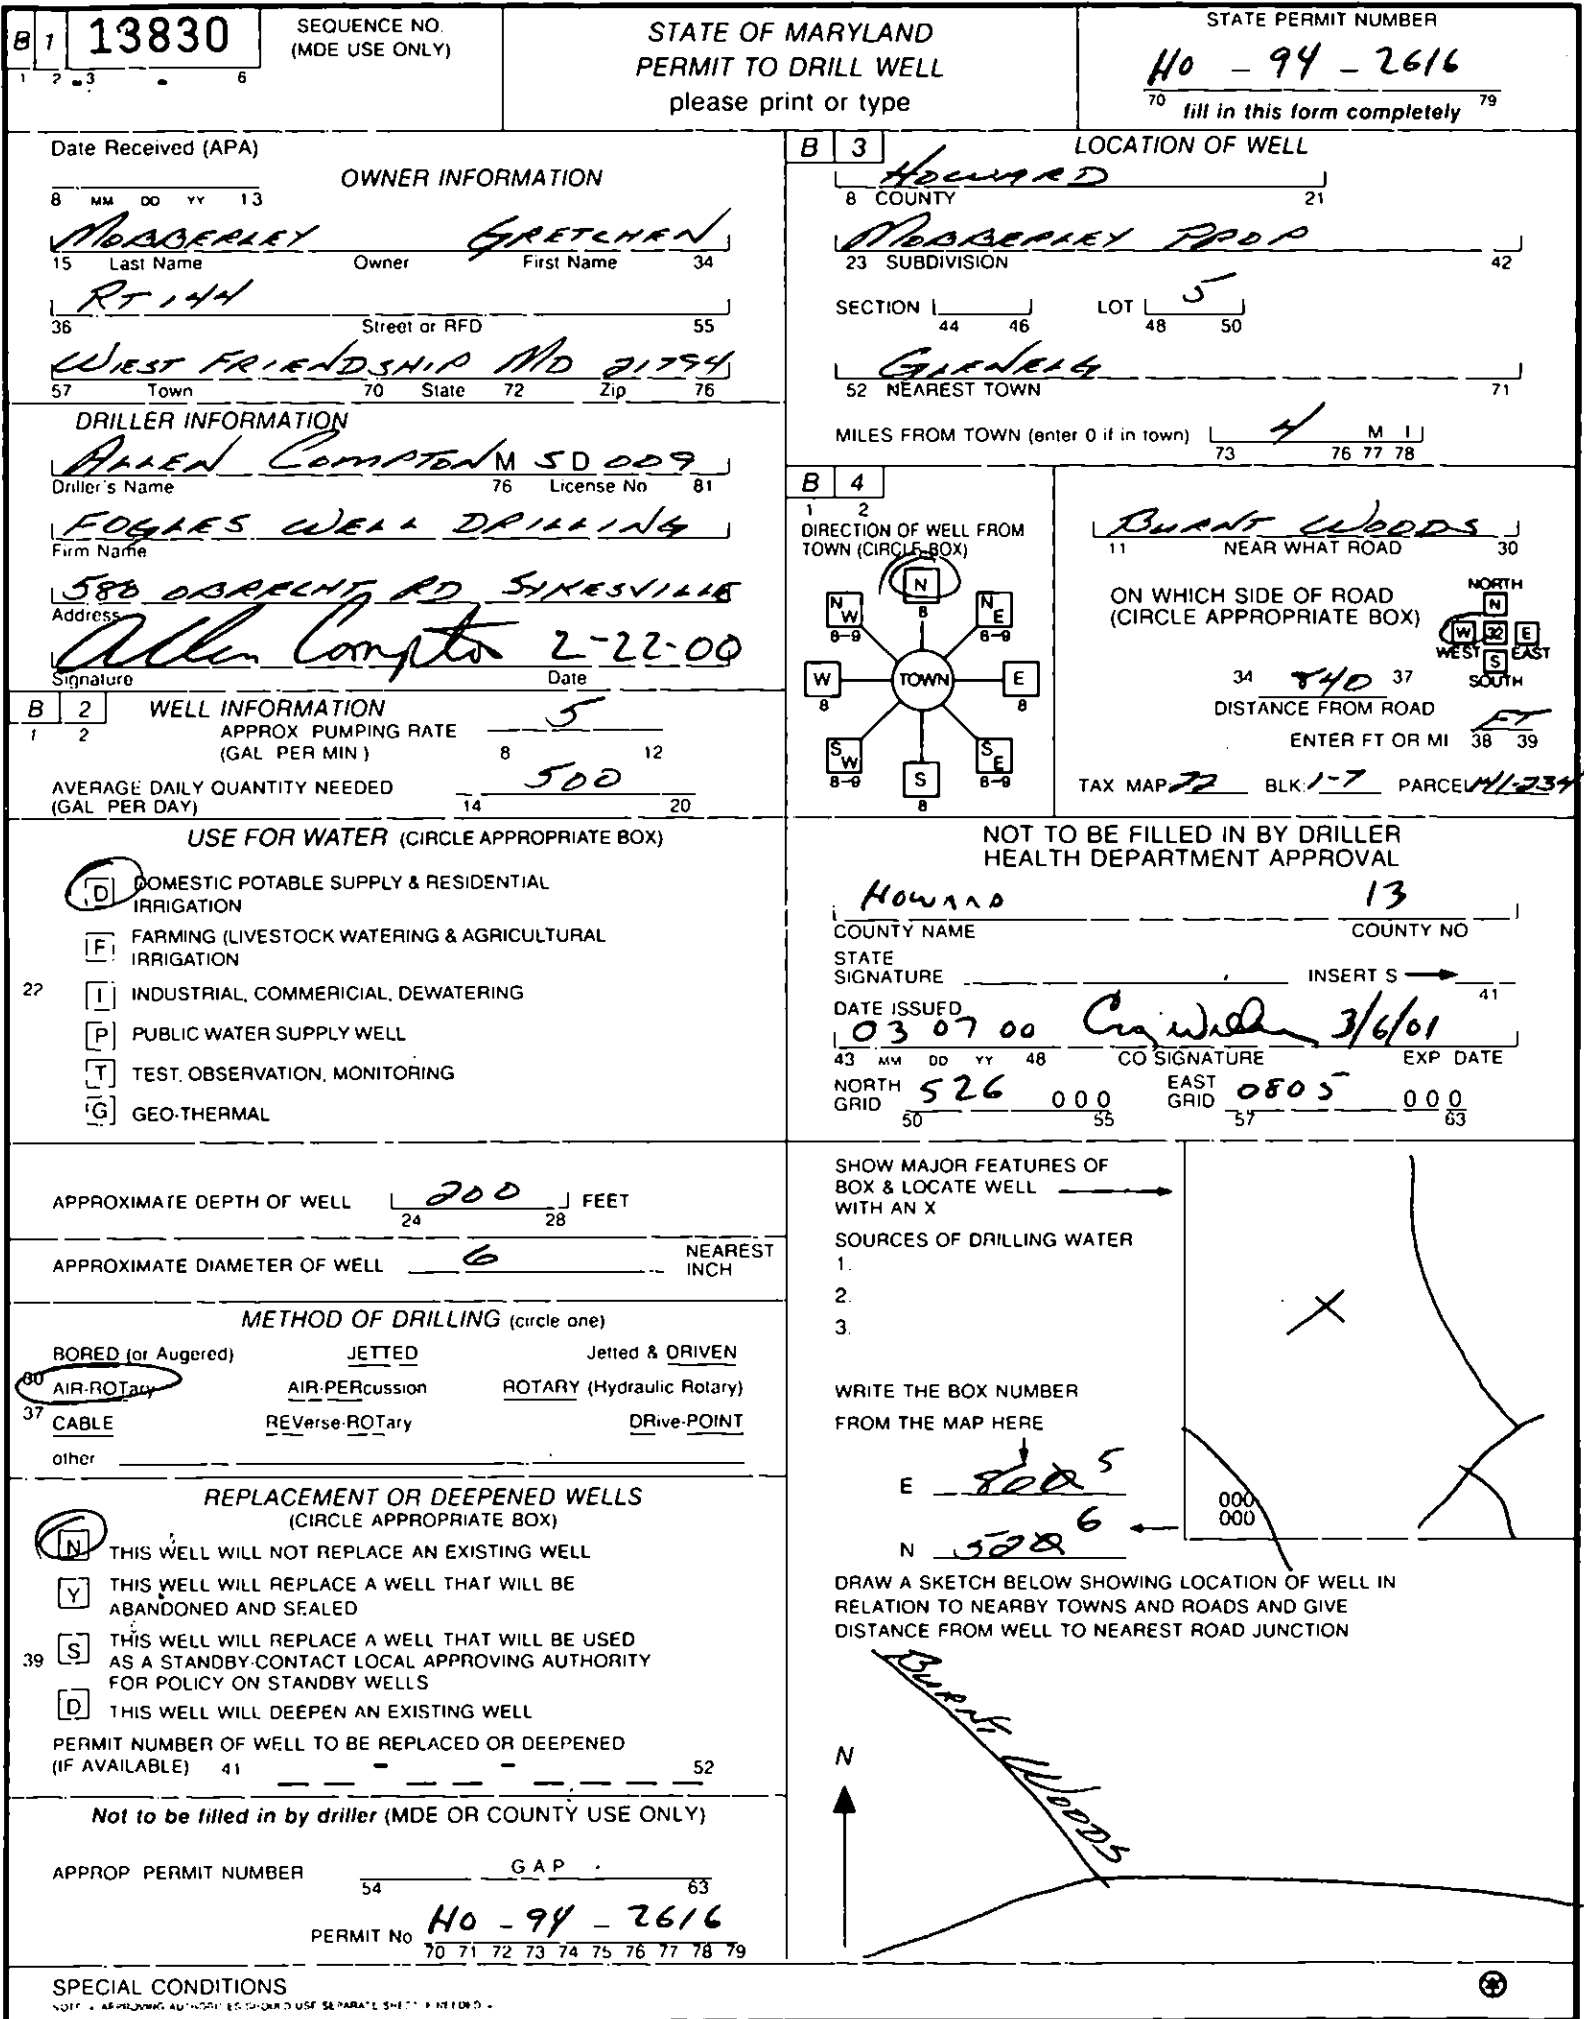 B 1 13830 SEQUENCE NO.
(MDE USE ONLY)
1 2 3 6
STATE OF MARYLAND
PERMIT TO DRILL WELL
please print or type
STATE PERMIT NUMBER
HO - 94 - 2616
70 fill in this form completely 79
Date Received (APA)
OWNER INFORMATION
8 MM DD YY 13
MOBBERLEY GRETCHEN
15 Last Name Owner First Name 34
RT 144
36 Street or RFD 55
WEST FRIENDSHIP MD 21794
57 Town 70 State 72 Zip 76
DRILLER INFORMATION
ALLEN COMPTON M S D 009
Driller's Name 76 License No 81
FOGLES WELL DRILLING
Firm Name
580 OBRECHT RD SYKESVILLE
Address
Allen Compton 2-22-00
Signature Date
B 2 WELL INFORMATION
1 2
APPROX PUMPING RATE 5
(GAL PER MIN) 8 12
AVERAGE DAILY QUANTITY NEEDED 500
(GAL PER DAY) 14 20
USE FOR WATER (CIRCLE APPROPRIATE BOX)
D DOMESTIC POTABLE SUPPLY & RESIDENTIAL
IRRIGATION
F FARMING (LIVESTOCK WATERING & AGRICULTURAL
IRRIGATION
22 I INDUSTRIAL, COMMERICIAL, DEWATERING
P PUBLIC WATER SUPPLY WELL
T TEST, OBSERVATION, MONITORING
G GEO-THERMAL
APPROXIMATE DEPTH OF WELL 200 FEET
24 28
APPROXIMATE DIAMETER OF WELL 6 NEAREST
INCH
METHOD OF DRILLING (circle one)
BORED (or Augered) JETTED Jetted & DRIVEN
30 AIR-ROTary AIR-PERcussion ROTARY (Hydraulic Rotary)
37 CABLE REVerse-ROTary DRive-POINT
other
REPLACEMENT OR DEEPENED WELLS
(CIRCLE APPROPRIATE BOX)
N THIS WELL WILL NOT REPLACE AN EXISTING WELL
Y THIS WELL WILL REPLACE A WELL THAT WILL BE
ABANDONED AND SEALED
39 S THIS WELL WILL REPLACE A WELL THAT WILL BE USED
AS A STANDBY-CONTACT LOCAL APPROVING AUTHORITY
FOR POLICY ON STANDBY WELLS
D THIS WELL WILL DEEPEN AN EXISTING WELL
PERMIT NUMBER OF WELL TO BE REPLACED OR DEEPENED
(IF AVAILABLE) 41 - - 52
Not to be filled in by driller (MDE OR COUNTY USE ONLY)
APPROP PERMIT NUMBER G A P
54 63
PERMIT No HO - 94 - 2616
70 71 72 73 74 75 76 77 78 79
SPECIAL CONDITIONS
NOTE - APPROVING AUTHORITIES SHOULD USE SEPARATE SHEET IF NEEDED -
B 3 LOCATION OF WELL
HOWARD
8 COUNTY 21
MOBBERLEY PROP
23 SUBDIVISION 42
SECTION LOT 5
44 46 48 50
GLENELG
52 NEAREST TOWN 71
MILES FROM TOWN (enter 0 if in town) 4 M I
73 76 77 78
B 4
1 2
DIRECTION OF WELL FROM
TOWN (CIRCLE BOX)
N
8
NW NE
8-9 8-9
W TOWN E
8 8
SW SE
8-9 8-9
S
8
BURNT WOODS
11 NEAR WHAT ROAD 30
ON WHICH SIDE OF ROAD
(CIRCLE APPROPRIATE BOX)
NORTH
N
W 32 E
WEST EAST
S
SOUTH
34 840 37
DISTANCE FROM ROAD
ENTER FT OR MI FT
38 39
TAX MAP 22 BLK: 1-7 PARCEL 141-234
NOT TO BE FILLED IN BY DRILLER
HEALTH DEPARTMENT APPROVAL
HOWARD 13
COUNTY NAME COUNTY NO
STATE
SIGNATURE INSERT S
41
DATE ISSUED
03 07 00 3/6/01
43 MM DD YY 48 CO SIGNATURE EXP DATE
NORTH GRID 526 000 EAST GRID 0805 000
50 55 57 63
SHOW MAJOR FEATURES OF
BOX & LOCATE WELL
WITH AN X
SOURCES OF DRILLING WATER
1.
2.
3.
X
WRITE THE BOX NUMBER
FROM THE MAP HERE
E 800 5
N 520 6
000
000
DRAW A SKETCH BELOW SHOWING LOCATION OF WELL IN
RELATION TO NEARBY TOWNS AND ROADS AND GIVE
DISTANCE FROM WELL TO NEAREST ROAD JUNCTION
BURNT WOODS
N